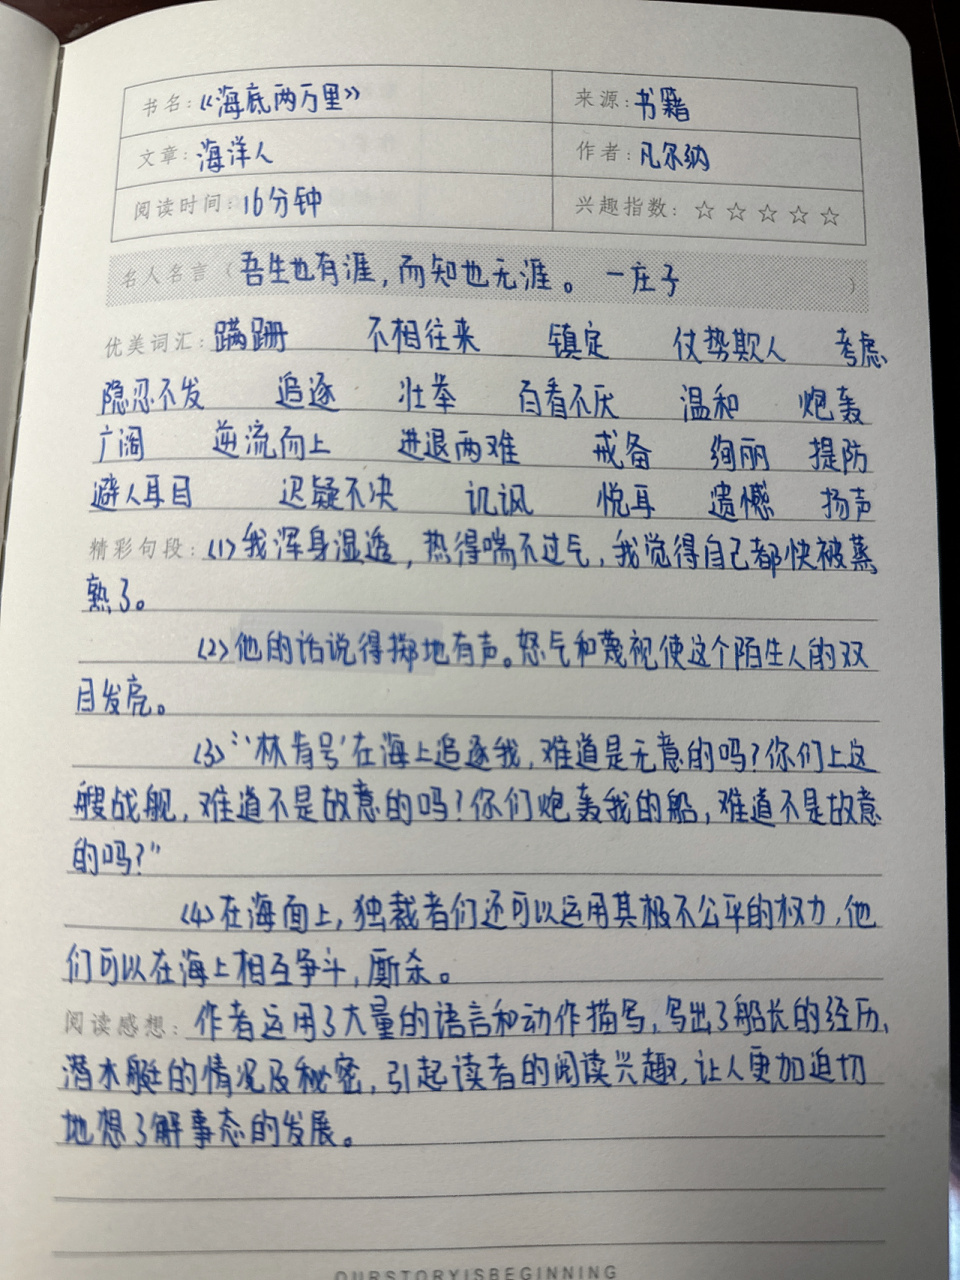 书名：《海底两万里》 来源：书籍
文章：海洋人 作者：凡尔纳
阅读时间：16分钟 兴趣指数：☆☆☆☆☆
名人名言（吾生也有涯，而知也无涯。 —庄子）
优美词汇：蹒跚 不相往来 镇定 仗势欺人 考虑
隐忍不发 追逐 壮举 百看不厌 温和 炮轰
广阔 逆流而上 进退两难 戒备 绚丽 提防
避人耳目 迟疑不决 讥讽 悦耳 遗憾 扬声
精彩句段：(1)我浑身湿透，热得喘不过气，我觉得自己都快被蒸
熟了。
(2)他的话说得掷地有声。怒气和蔑视使这个陌生人的双
目发亮。
(3)“‘林肯号’在海上追逐我，难道是无意的吗？你们上这
艘战舰，难道不是故意的吗？你们炮轰我的船，难道不是故意
的吗？”
(4)在海面上，独裁者们还可以运用其极不公平的权力，他
们可以在海上相互争斗，厮杀。
阅读感想：作者运用了大量的语言和动作描写，写出了船长的经历，
潜水艇的情况及秘密，引起读者的阅读兴趣，让人更加迫切
地想了解事态的发展。
OURSTORYISBEGINNING